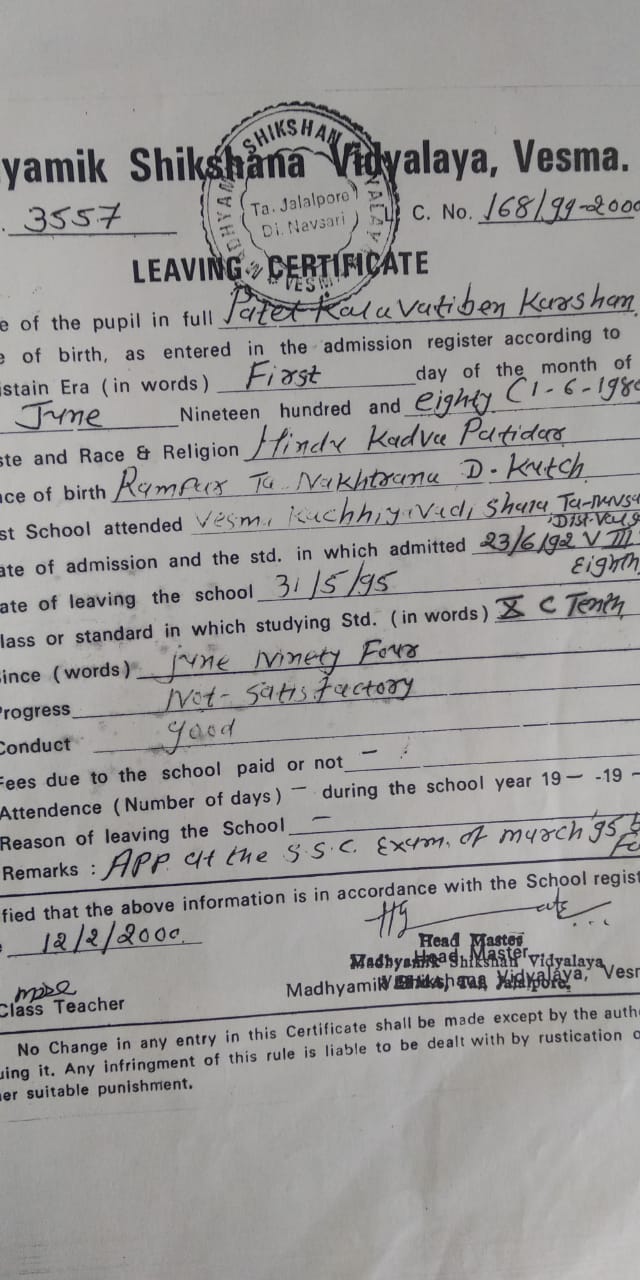 yamik Shikshana Vidyalaya, Vesma.
SHIKSHAN
Ta. Jalalpore
Di. Navsari
VESMA
. 3557 C. No. 168/99-2000
LEAVING CERTIFICATE
e of the pupil in full Patel Kalavatiben Karshan
e of birth, as entered in the admission register according to
istain Era (in words) First day of the month of
June Nineteen hundred and eighty (1-6-1980
ste and Race & Religion Hindu Kadva Patidar
ace of birth Rampur Ta. Nakhtrana D. Kutch
st School attended Vesma Kachhiyavadi Shara, Ta-Navsa
Dist-Val
ate of admission and the std. in which admitted 23/6/92 VIII
Eighth
ate of leaving the school 31/5/95
lass or standard in which studying Std. (in words) X C Tenth
ince (words) June Ninety Four
Progress Not-satisfactory
Conduct good
Fees due to the school paid or not –
Attendence (Number of days) – during the school year 19– -19 –
Reason of leaving the School –
Remarks : APP. at the S.S.C. Exam. of march '95
fied that the above information is in accordance with the School regist
12/2/2000
Head Master
Head Master
Madhyamik Shikshan Vidyalaya
Madhyamik Shikshana Vidyalaya, Vesm
Class Teacher
No Change in any entry in this Certificate shall be made except by the autho
uing it. Any infringment of this rule is liable to be dealt with by rustication o
er suitable punishment.